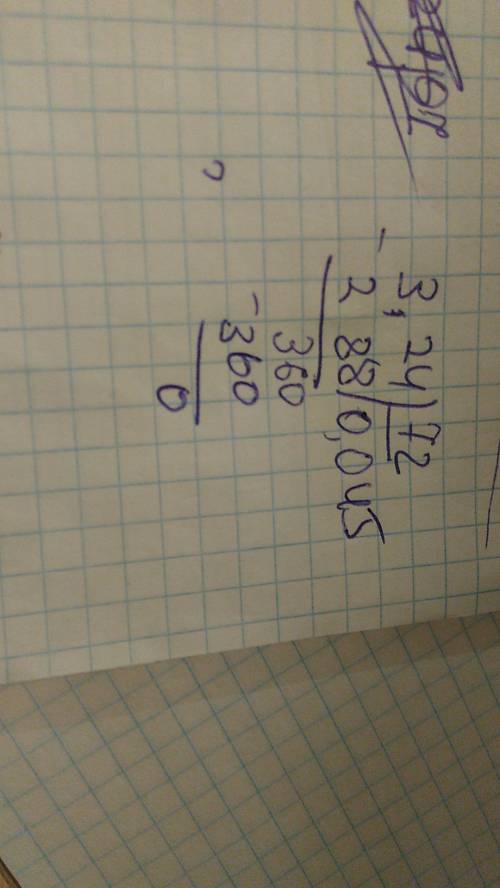 - 3,24 | 72
2 88 | 0,045
360
- 360
0